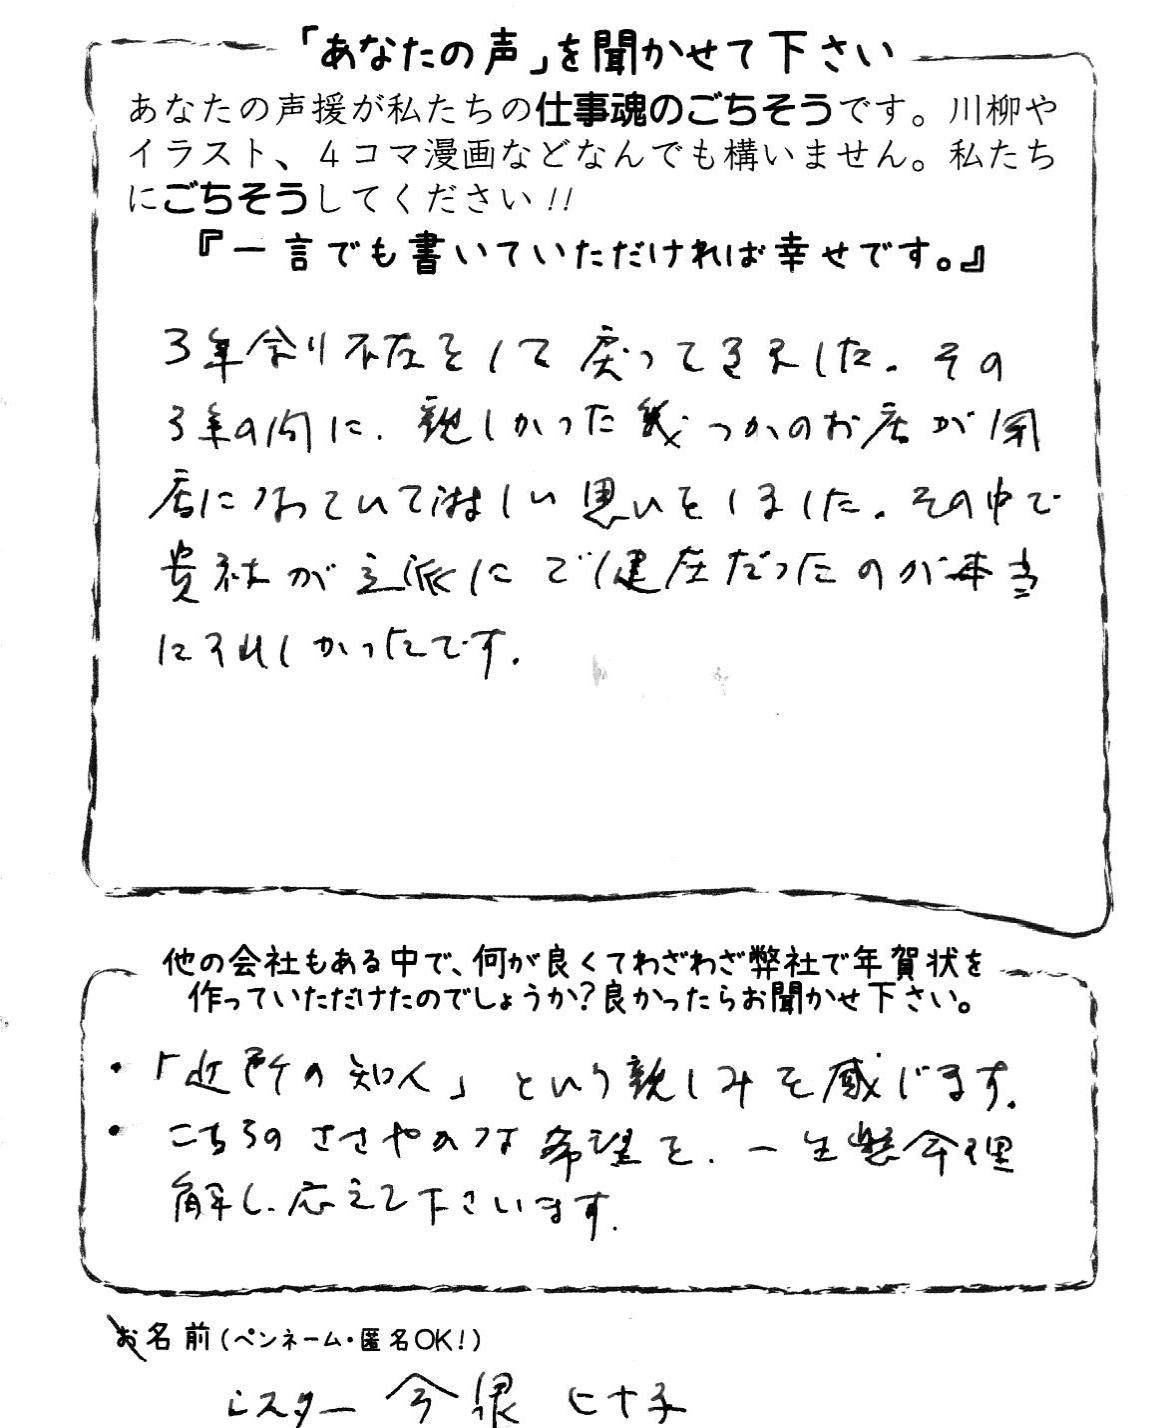 「あなたの声」を聞かせて下さい
あなたの声援が私たちの仕事魂のごちそうです。川柳や
イラスト、４コマ漫画などなんでも構いません。私たち
にごちそうしてください!!
『一言でも書いていただければ幸せです。』
3年余り不在をして戻ってきました。その
3年の間に、親しかった幾つかのお店が閉
店になっていて淋しい思いをしました。その中で
貴社が立派にご健在だったのが本当
にうれしかったです。
他の会社もある中で、何が良くてわざわざ弊社で年賀状を
作っていただけたのでしょうか?良かったらお聞かせ下さい。
・「近所の知人」という親しみを感じます。
・こちらのささやかな希望を、一生懸命理
解し、応えて下さいます。
お名前(ペンネーム・匿名OK!)
シスター 今泉 ヒナ子